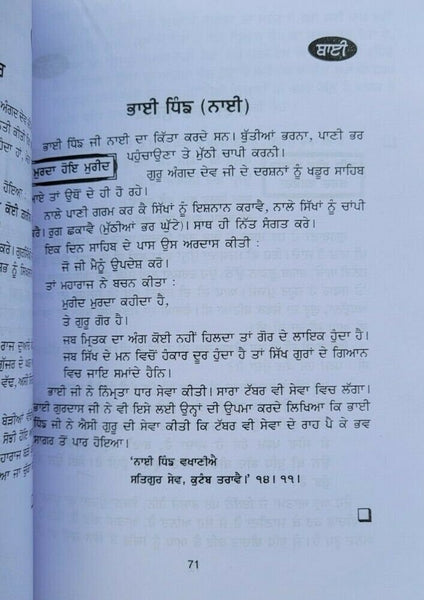 ਬਾਈ
ਭਾਈ ਧਿੰਙ (ਨਾਈ)
ਭਾਈ ਧਿੰਙ ਜੀ ਨਾਈ ਦਾ ਕਿੱਤਾ ਕਰਦੇ ਸਨ। ਬੁੱਤੀਆਂ ਭਰਨਾ, ਪਾਣੀ ਭਰ
ਪਹੁੰਚਾਉਣਾ ਤੇ ਮੁੱਠੀ ਚਾਪੀ ਕਰਨੀ।
ਮੁਰਦਾ ਹੋਇ ਮੁਰੀਦ
ਗੁਰੂ ਅੰਗਦ ਦੇਵ ਜੀ ਦੇ ਦਰਸ਼ਨਾਂ ਨੂੰ ਖਡੂਰ ਸਾਹਿਬ
ਆਏ ਤਾਂ ਉਥੋਂ ਦੇ ਹੀ ਹੋ ਰਹੇ।
ਨਾਲੇ ਪਾਣੀ ਗਰਮ ਕਰ ਕੈ ਸਿੱਖਾਂ ਨੂੰ ਇਸ਼ਨਾਨ ਕਰਾਵੈ, ਨਾਲੇ ਸਿੱਖਾਂ ਨੂੰ ਚਾਂਪੀ
ਕਰੇ। ਰੁਗ ਛਕਾਵੈ (ਮੁੱਠੀਆਂ ਭਰ ਘੁੱਟੇ)। ਸਾਥ ਹੀ ਨਿੱਤ ਸੰਗਤ ਕਰੇ।
ਇਕ ਦਿਨ ਸਾਹਿਬ ਦੇ ਪਾਸ ਉਸ ਅਰਦਾਸ ਕੀਤੀ :
ਜੋ ਜੀ ਮੈਨੂੰ ਉਪਦੇਸ਼ ਕਰੋ।
ਤਾਂ ਮਹਾਰਾਜ ਨੇ ਬਚਨ ਕੀਤਾ :
ਮੁਰੀਦ ਮੁਰਦਾ ਕਹੀਦਾ ਹੈ,
ਤੇ ਗੁਰੂ ਗੋਰ ਹੈ।
ਜਬ ਮ੍ਰਿਤਕ ਦਾ ਅੰਗ ਕੋਈ ਨਹੀਂ ਹਿਲਦਾ ਤਾਂ ਗੋਰ ਦੇ ਲਾਇਕ ਹੁੰਦਾ ਹੈ।
ਜਬ ਸਿੱਖ ਦੇ ਮਨ ਵਿਚੋਂ ਹੰਕਾਰ ਦੂਰ ਹੁੰਦਾ ਹੈ ਤਾਂ ਸਿੱਖ ਗੁਰਾਂ ਦੇ ਗਿਆਨ
ਵਿਚ ਜਾਇ ਸਮਾਂਦੇ ਹੈਨਿ।
ਭਾਈ ਜੀ ਨੇ ਨਿੰਮ੍ਰਤਾ ਧਾਰ ਸੇਵਾ ਕੀਤੀ। ਸਾਰਾ ਟੱਬਰ ਵੀ ਸੇਵਾ ਵਿਚ ਲੱਗਾ।
ਭਾਈ ਗੁਰਦਾਸ ਜੀ ਨੇ ਵੀ ਇਸੇ ਲਈ ਉਨ੍ਹਾਂ ਦੀ ਉਪਮਾ ਕਰਦੇ ਲਿਖਿਆ ਕਿ ਭਾਈ
ਧਿੰਙ ਜੀ ਨੇ ਐਸੀ ਗੁਰੂ ਦੀ ਸੇਵਾ ਕੀਤੀ ਕਿ ਟੱਬਰ ਵੀ ਸੇਵਾ ਦੇ ਰਾਹ ਪੈ ਕੇ ਭਵ
ਸਾਗਰ ਤੋਂ ਪਾਰ ਹੋਇਆ।
'ਨਾਈ ਧਿੰਙ ਵਖਾਣੀਐ
ਸਤਿਗੁਰ ਸੇਵ, ਕੁਟੰਬ ਤਰਾਵੈ।' ੧੪। ੧੧।
71